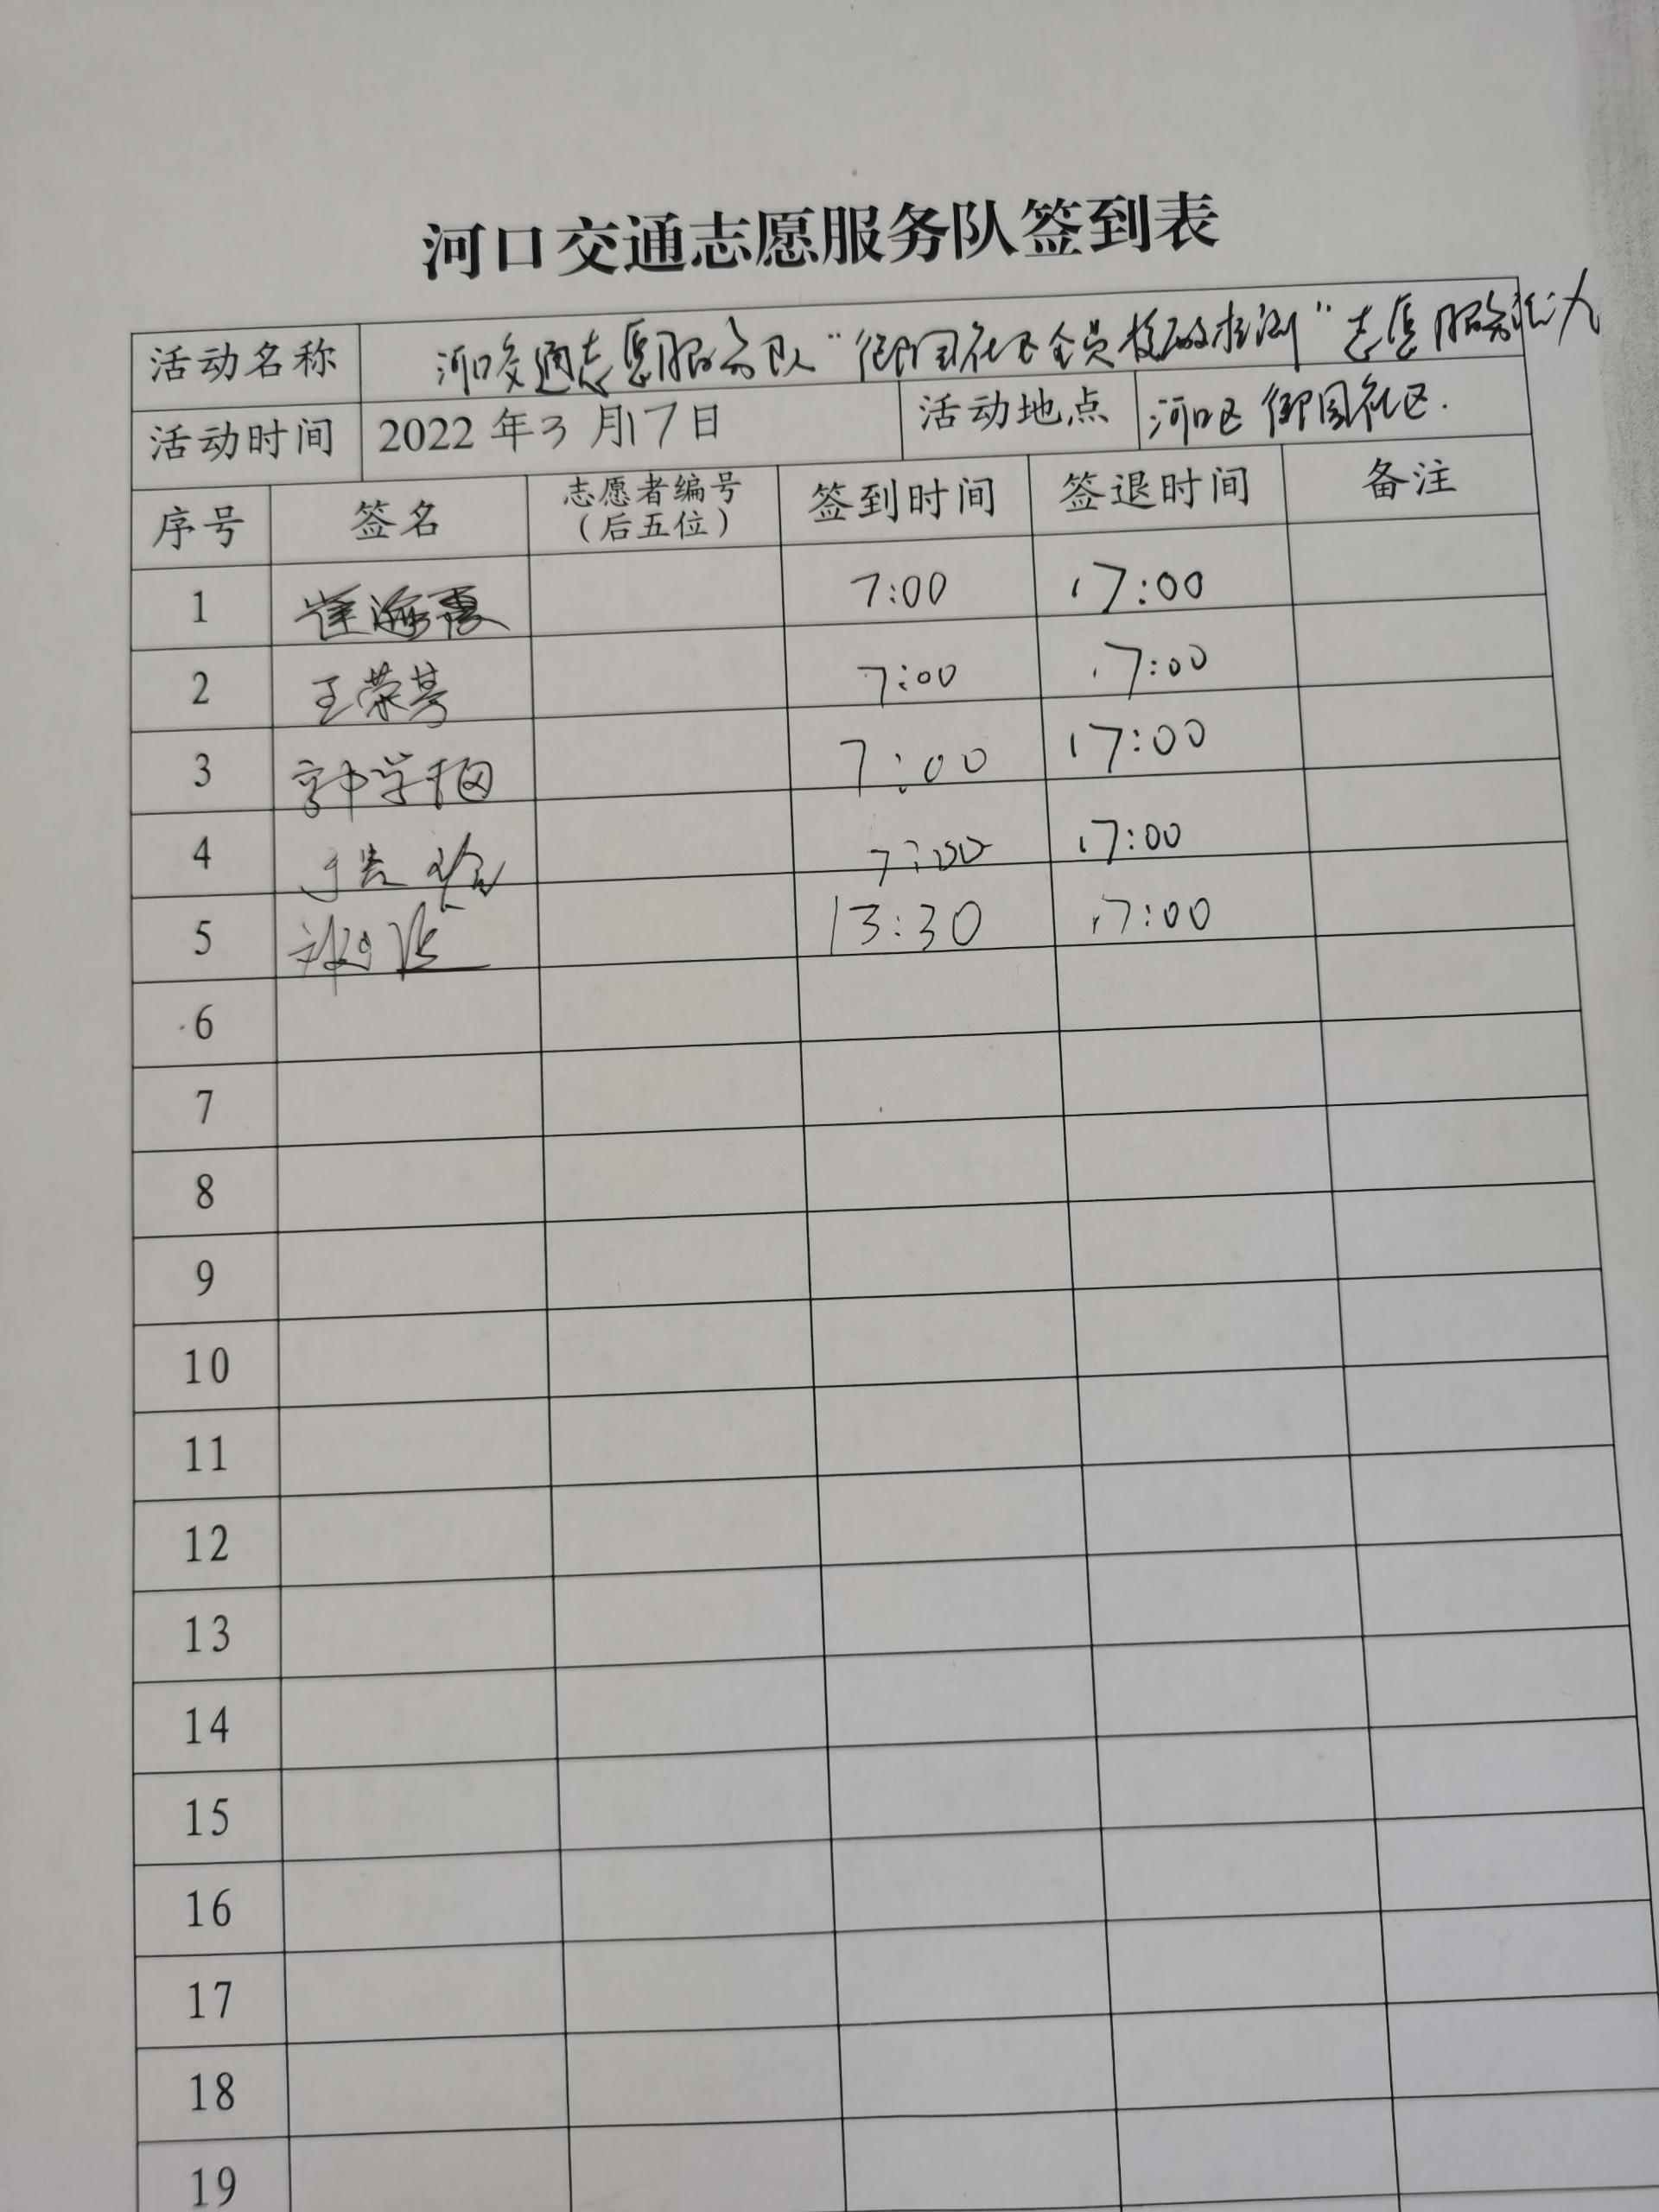 河口交通志愿服务队签到表
活动名称 河口交通志愿服务队“御园社区全员核酸检测”志愿服务活动
活动时间 2022年3月17日 活动地点 河口区御园社区.
序号 签名 志愿者编号（后五位） 签到时间 签退时间 备注
1 崔海霞 7:00 17:00
2 王荣 7:00 17:00
3 7:00 17:00
4 7:00 17:00
5 13:30 17:00
6
7
8
9
10
11
12
13
14
15
16
17
18
19